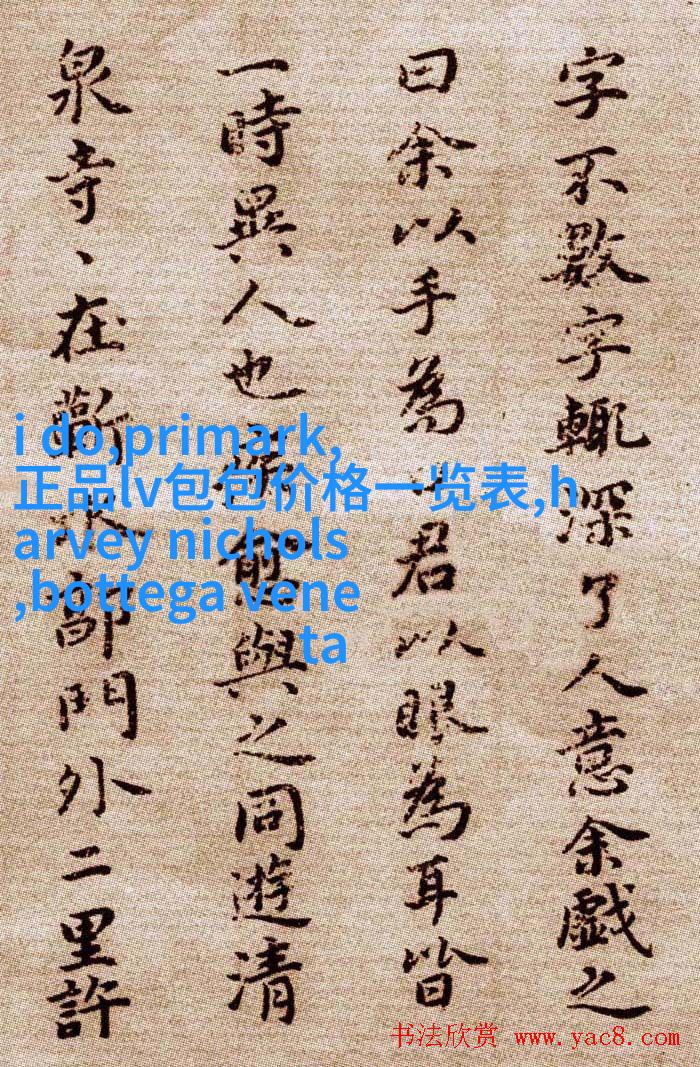 字不數字輒深了人意余戲之
曰余以手為君以眼為耳皆
一時異人也愈與之同遊清
泉寺、在蘄水郭門外二里許
i do,primark,
正品lv包包价格一览表,h
arvey nichols
,bottega vene
ta
书法欣赏 www.yac8.com